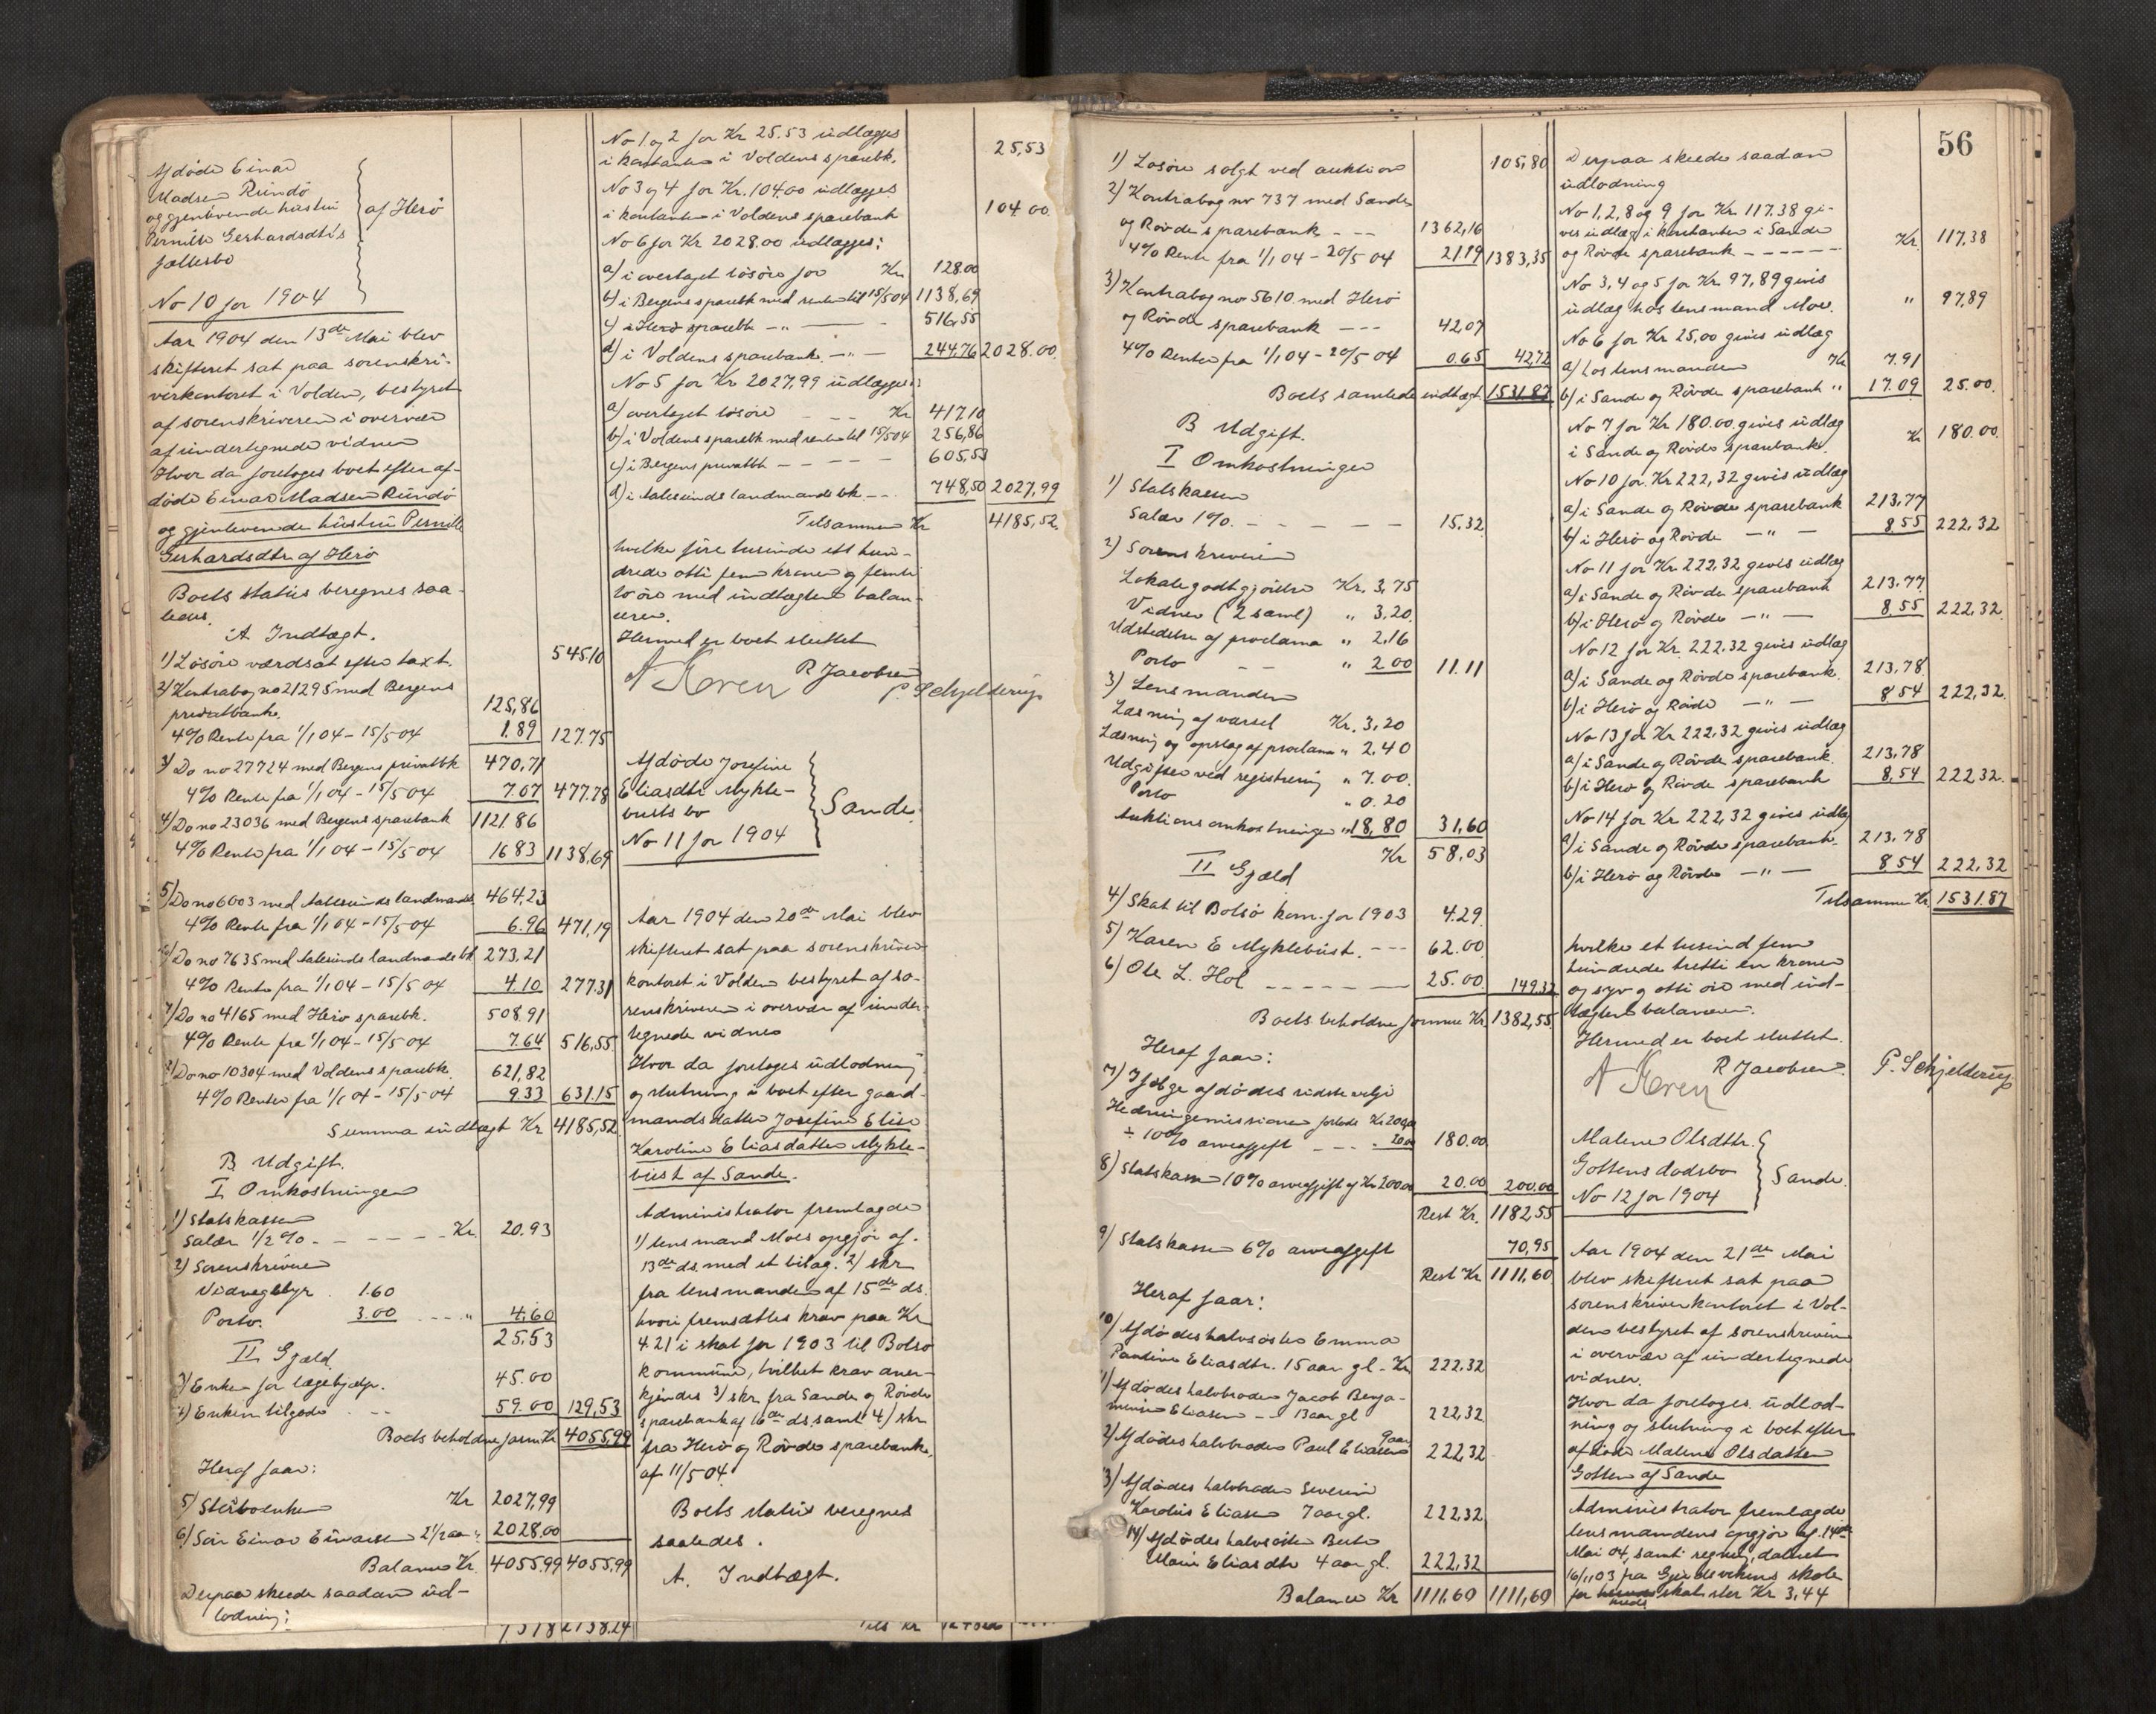 Afdøde Einar
Madsen Rundö
og gjenlevende hustru
Pernille Gerhardsdtrs
fællesbo
af Herö
No 10 for 1904
Aar 1904 den 13de Mai blev
skifteret sat paa sorenskri-
verkontoret i Volden, bestyret
af sorenskriveren i overvær
af undertegnede vidner
Hvor da foretoges boet efter af-
døde Einar Madsen Rundö
og gjenlevende hustru Pernille
Gerhardsdtr af Herö
Boets status beregnes saa-
ledes.
A Indtægt.
1) Lösöre værdsat efter taxt. 545.10
2) Kontrabog no 21295 med Bergens
privatbank. 125,86
4% Rente fra 1/1 04 - 15/5 04 1.89 127.75
3) Do no 27724 med Bergens privatbk 470,71
4% Rente fra 1/1 04 - 15/5 04 7.07 477.78
4) Do no 23036 med Bergens sparebank 1121.86
4% Rente fra 1/1 04 - 15/5 04 16 83 1138,69
5) Do no 6003 med Aalesunds landmands 464,23
4% Rente fra 1/1 04 - 15/5 04 6.96 471,19
6) Do no 7635 med Aalesunds landmandsbk 273,21
4% Rente fra 1/1 04 - 15/5 04 4.10 277.31
7) Do no 4165 med Herö sparebk. 508.91
4% Rente fra 1/1 04 - 15/5 04 7.64 516,55
8) Do no 10304 med Voldens sparebk. 621,82
4% Renter fra 1/1 04 - 15/5 04 9.33 631.15
Summa indtægt Kr 4185,52
B Udgift.
I Omkostninger
1) Statskassen
Salær 1/2 % - - - - - Kr. 20.93
2) Sorenskriveren
Vidnegebyr. 1.60
Porto. 3.00 - - - " 4,60
25,53
II Gjæld
3) Enken for lægehjælp. 45.00
4) Enken tilgode - - 59.00 129,53
Boets beholdne form Kr 4055,99
Heraf faar:
5) Sterboenken Kr 2027,99
6) Sön Einar Einarsen 2 1/2 aar " 2028.00
Balance Kr. 4055.99 4055,99
Derpaa skeede saadan ud-
lodning:
No 1 og 2 for Kr 25.53 udlægges
i kontanter i Voldens sparebk. 25,53
No 3 og 4 for Kr. 104.00 udlægges
i kontanter i Voldens sparebank 104.00
No 6 for Kr 2028.00 udlægges:
a) i overtaget lösöre for Kr 128.00
b) i Bergens sparebk med renter til 15/5 04 1138,69
c) i Herö sparebk - " - 516,55
d) i Voldens sparebank - " - 244,76 2028.00
No 5 for Kr 2027.99 udlægges:
a) overtaget lösöre - - Kr 417.10
b) i Voldens sparebk med renter til 15/5 04 256,86
c) i Bergens privatbk - - - - 605,53
d) i Aalesunds landmandsbk - - 748,50 2027,99
Tilsammen Kr 4185,52
hvilke fire tusinde ett hun-
drede otti fem kroner og femti
to öre med indtægten balan-
cerer.
Hermed er boet sluttet
R Jacobsen
P. Schjelderup
Afdöde Josefine
Eliasdtr Mykle-
busts bo
No 11 for 1904
Sande
Aar 1904 den 20de Mai blev
skifteret sat paa sorenskriver-
kontoret i Volden bestyret af so-
renskriveren i overvær af under-
tegnede vidner
Hvor da foretoges udlodning
og slutning i boet efter gaard-
mandsdatter Josefine Elise
Karoline Eliasdatter Mykle-
bust af Sande.
Administrator fremlagde
1) lensmand Moes opgjör af
13de ds. med et bilag. 2) skr
fra lensmanden af 15de ds.
hvori fremsættes krav paa Kr
4.21 i skat for 1903 til Bolsö
kommune, hvilket krav aner-
kjendes 3) skr. fra Sande og Rövde
sparebank af 16de ds. samt 4) skr
fra Herö og Rövde sparebank,
af 11/5 04.
Boets status beregnes
saaledes.
A. Indtægt.
56
1) Lösöre solgt ved auktion 105,80
2) Kontrabog no 737 med Sande
og Rövde sparebank - - 1362,16
4% Rente fra 1/1 04 - 20/5 04 21.19 1383,35
3) Kontrabog no 5610. med Herö
og Rövde sparebank - - - 42,07
4% Renter fra 1/1 04 - 20/5 04 0.65 42,72
Boets samlede indtægt 1531.87
B Udgift.
I Omkostninger
1) Statskassen
Salær 1%. - - - - - 15,32
2) Sorenskriveren
Lokalegodtgjörelse Kr. 3,75
Vidner (2 saml) " 3,20
Udstedelse af proclama " 2,16
Porto - - " 2.00 11.11
3) Lensmanden
Læsning af varsel Kr. 3,20
Læsning og opslag af proclama " 2,40
Udgifter ved registrering " 7.00
Porto " 0.20
Auktionsomkostninger " 18,80 31,60
Kr 58,03
II Gjæld
4) Skat til Bolsö kom. for 1903 4.29
5) Karen E Myklebust. - - - 62.00
6) Ole L. Hol - - - - - 25.00 149.32
Boets beholdne formue Kr. 1382,55
Heraf faar:
7) Ifölge afdödes sidste vilje
Hedningemissionen Kr 200,00
÷ 10% arveafgift - - - 20.00 180.00
8) Statskassen 10% arveafgift af Kr 200.00 20.00 200.00
Rest Kr. 1182,55
9) Statskassen 6% arveafgift 70,95
Rest Kr 1111,60
Heraf faar:
10) Afdödes halvsöster Emma
Pauline Eliasdtr. 15 aar gl - Kr 222,32
11) Afdödes halvbroder Jacob Benja-
minsen Eliasen - - 13 aar gl 222,32
12) Afdödes halvbroder Paul Eliasen 9 aar 222,32
13) Afdödes halvbroder Severin
Karolus Eliasen 7 aar gl. 222,32
14) Afdödes halvsöster Berte
Marie Eliasdtr 4 aar gl. 222,32
Balance Kr 1111,60 1111,60
Derpaa skeede saadan
udlodning
No 1, 2, 8 og 9 for Kr. 117.38 gi-
ves udlæg i kontanter i Sande
og Rövde sparebank - - - - Kr. 117,38
No 3, 4 og 5 for Kr. 97,89 givis
udlæg hos lensmand Moe. " 97,89
No 6 for Kr 25,00 givis udlæg
a) hos lensmanden Kr 7.91
b) i Sande og Rövde sparebank " 17.09 25.00.
No 7 for Kr 180.00 givis udlæg
i Sande og Rövde sparebank. Kr 180.00.
No 10 for Kr 222,32 givis udlæg
a) i Sande og Rövde sparebank 213,77
b) i Herö og Rövde - " - 8,55 222,32
No 11 for Kr 222,32 givis udlæg
a) i Sande og Rövde sparebank 213,77
b) i Herö og Rövde - " - 8,55 222,32
No 12 for Kr. 222,32 givis udlæg
a) i Sande og Rövde sparebank. 213,78
b) i Herö og Rövde - " - 8 54 222,32
No 13 for Kr 222,32 givis udlæg
a) i Sande og Rövde sparebank. 213,78
b) i Herö og Rövde sparebank 8,54 222,32
No 14 for Kr 222,32 givis udlæg
a) i Sande og Rövde sparebank. 213,78
b) i Herö og Rövde - " - 8 54 222,32
Tilsammen Kr. 1531.87
hvilke et tusind fem
hundrede tretti en kroner
og syv og otti öre med ind-
tægten balancerer.
Hermed er boet sluttet.
R Jacobsen. P. Schjelderup
Malene Olsdtr.
Gottens dödsbo
No 12 for 1904
Sande.
Aar 1904 den 21de Mai
blev skifteret sat paa
sorenskriverkontoret i Vol-
den bestyret af sorenskriveren
i overvær af undertegnede
vidner.
Hvor da foretoges udlod-
ning og slutning i boet efter
afdöde Malene Olsdatter
Gotten af Sande
Administrator fremlagde
lensmandens opgjör af 14de
Mai 04, samt regning, dateret
16/11 03 fra skole
for skat stor Kr 3,44